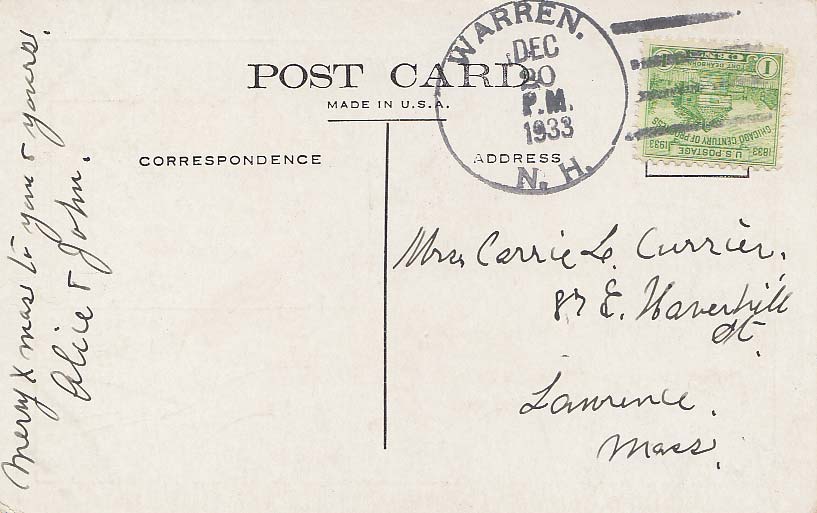 POST CARD
MADE IN U.S.A.
CORRESPONDENCE
ADDRESS
WARREN.
DEC
20
P.M.
1933
N. H.
1
FORT DEARBORN
1833
CHICAGO CENTURY OF PROGRESS
1933
U.S. POSTAGE
Merry Xmas to you & yours.
Alice & John.
Mrs. Carrie L. Currier.
87 E. Haverhill
St.
Lawrence.
Mass.